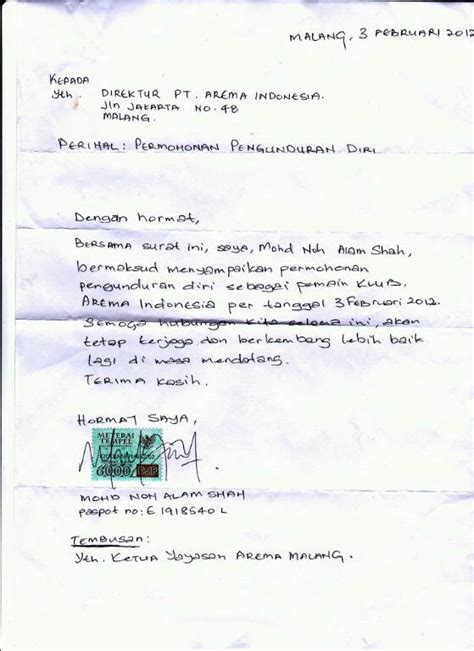 MALANG, 3 FEBRUARI 2012
KEPADA
Yth. DIREKTUR PT. AREMA INDONESIA.
Jln JAKARTA NO. 48
MALANG.
PERIHAL: PERMOHONAN PENGUNDURAN DIRI
Dengan hormat,
BERSAMA surat ini, saya, Mohd Noh Alam Shah,
bermaksud menyampaikan permohonan
pengunduran diri sebagai pemain KLUB.
AREMA Indonesia per tanggal 3 Februari 2012.
Semoga hubungan kita selama ini, akan
tetap terjaga dan berkembang lebih baik
lagi di masa mendatang.
TERIMA Kasih.
HORMAT SAYA,
METERAI
TEMPEL
6000
MOHD NOH ALAM SHAH
paspot no: E 1918540 L
TEMBUSAN:
Yth. KETUA Yayasan AREMA MALANG.